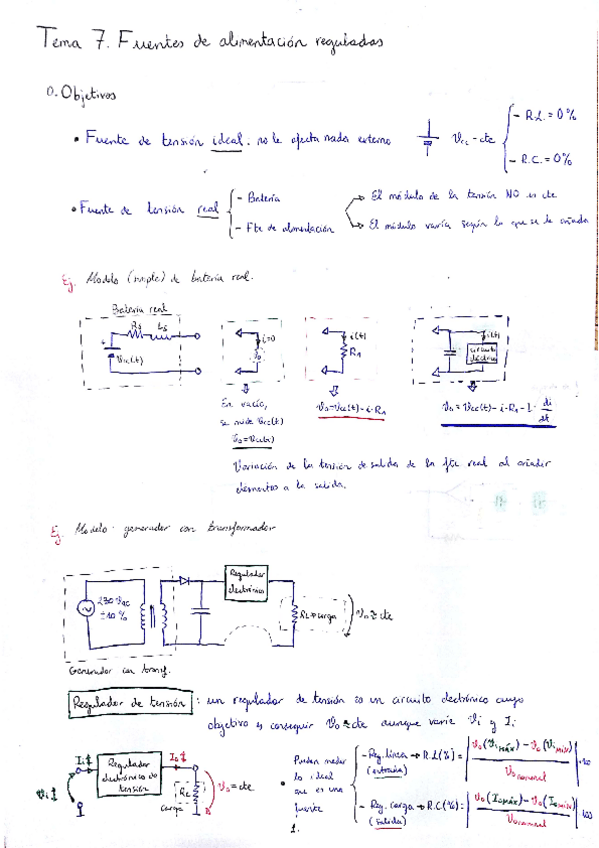 Tema 7. Fuentes de alimentación reguladas
0. Objetivos
• Fuente de tensión ideal. no le afecta nada externo
Vcc - cte
- R.L. = 0%
- R.C. = 0%
• Fuente de tensión real
- Batería
- Fte de alimentación
El módulo de la tensión NO es cte
El módulo varía según lo que se le añada
Ej. Modelo (simple) de batería real.
Batería real
Rs Ls
+
Vcc(t)
i=0
Vo
i(t)
R1
i(t)
circuito
eléctrico
En vacío,
se mide Vcc(t)
Vo=Vcc(t)
Vo=Vcc(t)-i·R1
Vo = Vcc(t) - i·R1 - L· di/dt
Variación de la tensión de salida de la fte real al añadir
elementos a la salida.
Ej. Modelo: generador con transformador
230 Vac
±10%
Regulador
electrónico
RL→carga
Vo ≈ cte
Generador con transf.
Regulador de tensión : un regulador de tensión es un circuito electrónico cuyo
objetivo es conseguir Vo ≈ cte aunque varíe Vi y Ii
Ii
Regulador
electrónico de
tensión
Io
Vi
RL
carga
Vo = cte
• Pueden medir
lo ideal
que es una
fuente
- Reg. línea → R.L(%) = | Vo(Vimáx) - Vo(Vimín) / Vo nominal | · 100
(entrada)
- Reg. carga → R.C(%) = | Vo(Iomáx) - Vo(Iomín) / Vo nominal | · 100
(salida)
1.